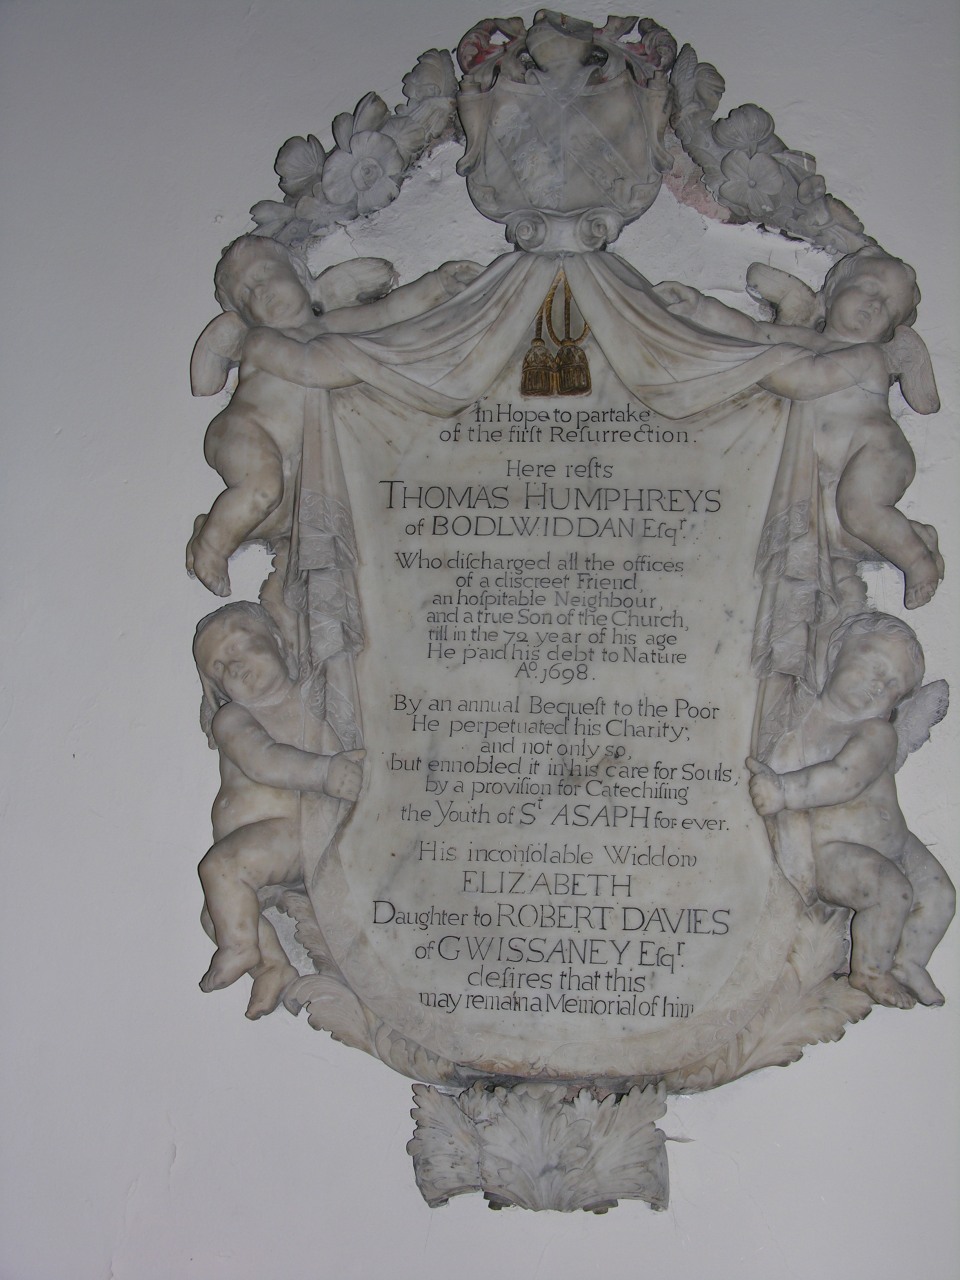 In Hope to partake
of the firſt Reſurrection.
Here reſts
THOMAS HUMPHREYS
of BODLWIDDAN Eſqr.
Who diſcharged all the offices
of a diſcreet Friend,
an hoſpitable Neighbour,
and a true Son of the Church,
till in the 72 year of his age
He paid his debt to Nature
Ao. 1698.
By an annual Bequeſt to the Poor
He perpetuated his Charity;
and not only so,
but ennobled it in his care for Souls,
by a proviſion for Catechiſing
the Youth of St ASAPH for ever.
His inconſolable Widdow
ELIZABETH
Daughter to ROBERT DAVIES
of GWISSANEY Eſqr.
deſires that this
may remain a Memorial of him